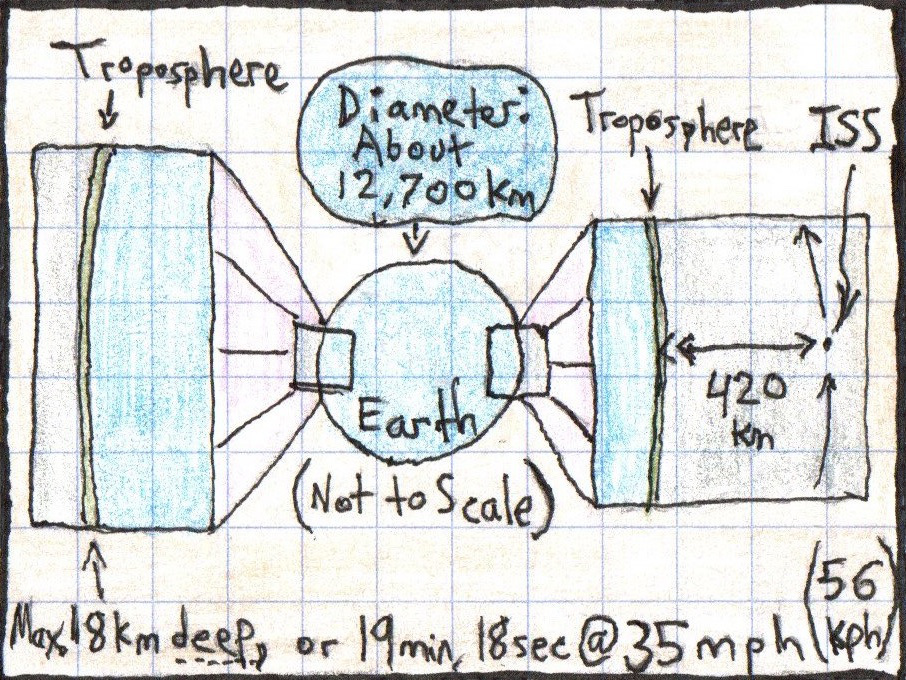 Troposphere
Diameter:
About
12,700km
Troposphere
ISS
420
km
Earth
(Not to Scale)
Max. 18km deep, or 19min, 18sec @ 35mph (56 kph)